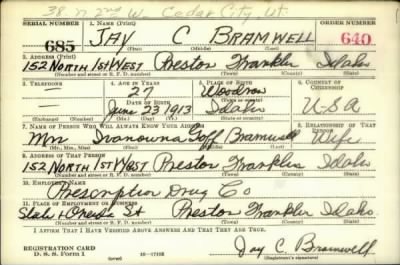 38 n 2nd W. Cedar City, Ut.
SERIAL NUMBER 1. NAME (Print) ORDER NUMBER
685 JAY C BRAMWELL 640
(First) (Middle) (Last)
2. ADDRESS (Print)
152 NORTH 1ST WEST Preston Franklin Idaho
(Number and street or R. F. D. number) (Town) (County) (State)
3. TELEPHONE 4. AGE IN YEARS 5. PLACE OF BIRTH 6. COUNTRY OF CITIZENSHIP
— 27 Woodrow
DATE OF BIRTH
— June 23 1913 Idaho USA
(Exchange) (Number) (Mo.) (Day) (Yr.) (State or country)
7. NAME OF PERSON WHO WILL ALWAYS KNOW YOUR ADDRESS 8. RELATIONSHIP OF THAT PERSON
Mrs Goff Bramwell Wife
(Mr., Mrs., Miss) (First) (Middle) (Last)
9. ADDRESS OF THAT PERSON
152 NORTH 1ST WEST Preston Franklin Idaho
(Number and street or R. F. D. number) (Town) (County) (State)
10. EMPLOYER'S NAME
Prescription Drug Co
11. PLACE OF EMPLOYMENT OR BUSINESS
State & Oneida St Preston Franklin Idaho
(Number and street or R. F. D. number) (Town) (County) (State)
I AFFIRM THAT I HAVE VERIFIED ABOVE ANSWERS AND THAT THEY ARE TRUE.
REGISTRATION CARD
D. S. S. Form 1 (over) 16—17105 Jay C. Bramwell
(Registrant's signature)